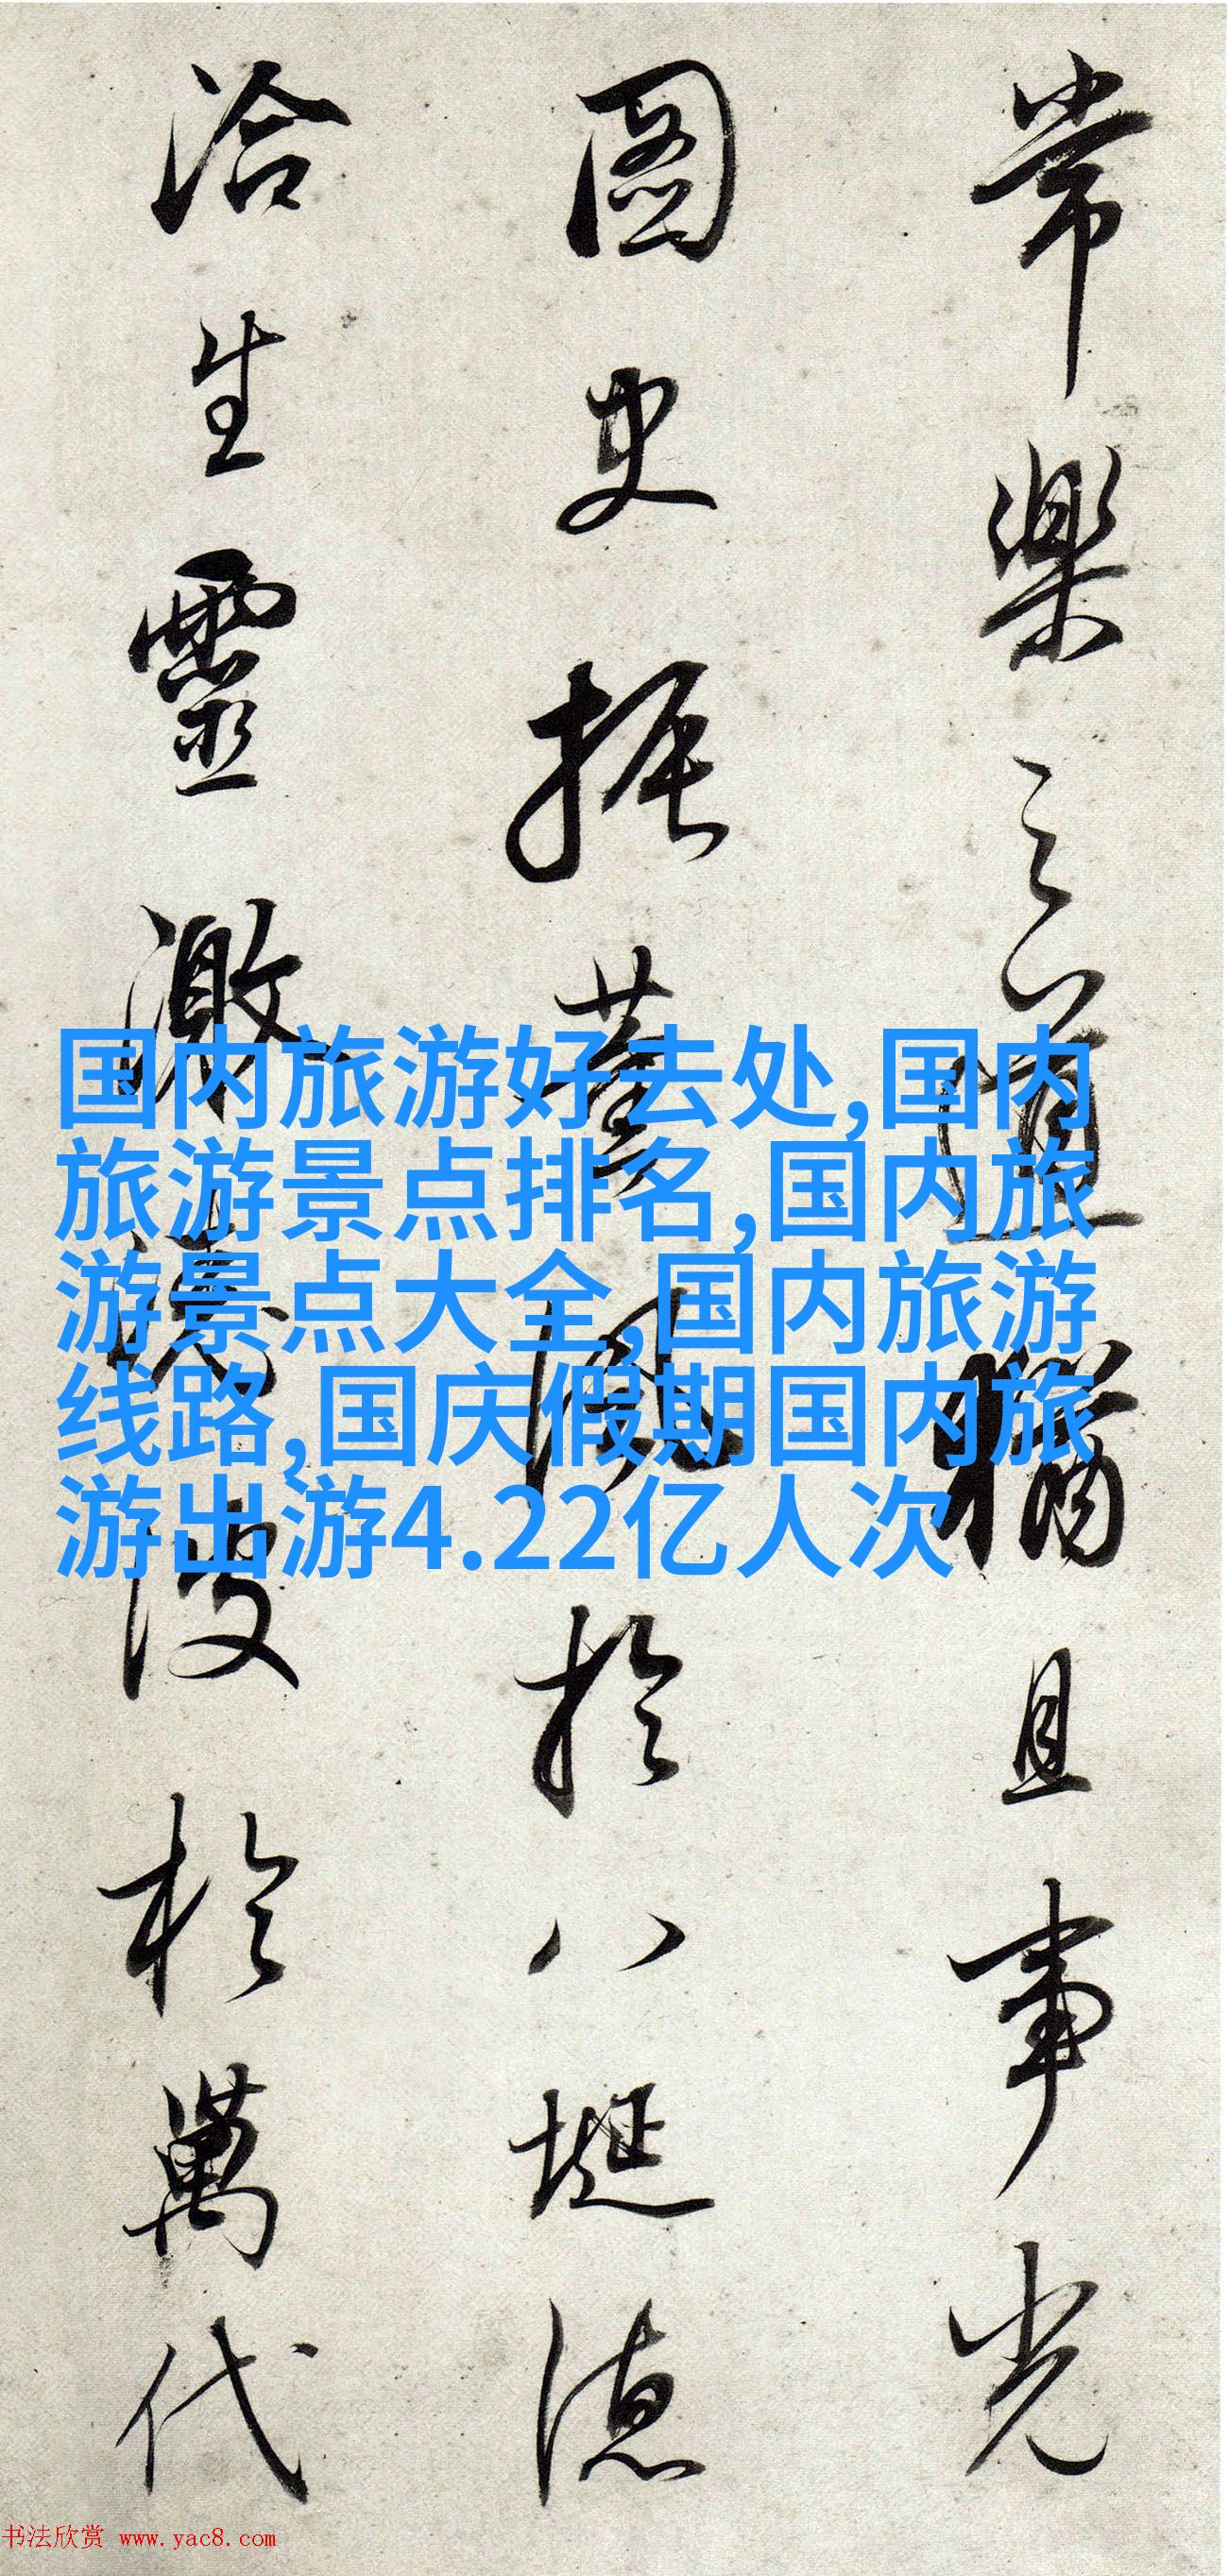 常樂之道猶且事光
圖史振薰風於八埏德
洽生靈激澆波於萬代
国内旅游好去处,国内
旅游景点排名,国内旅
游景点大全,国内旅游
线路,国庆假期国内旅
游出游4.22亿人次
书法欣赏 www.yac8.com